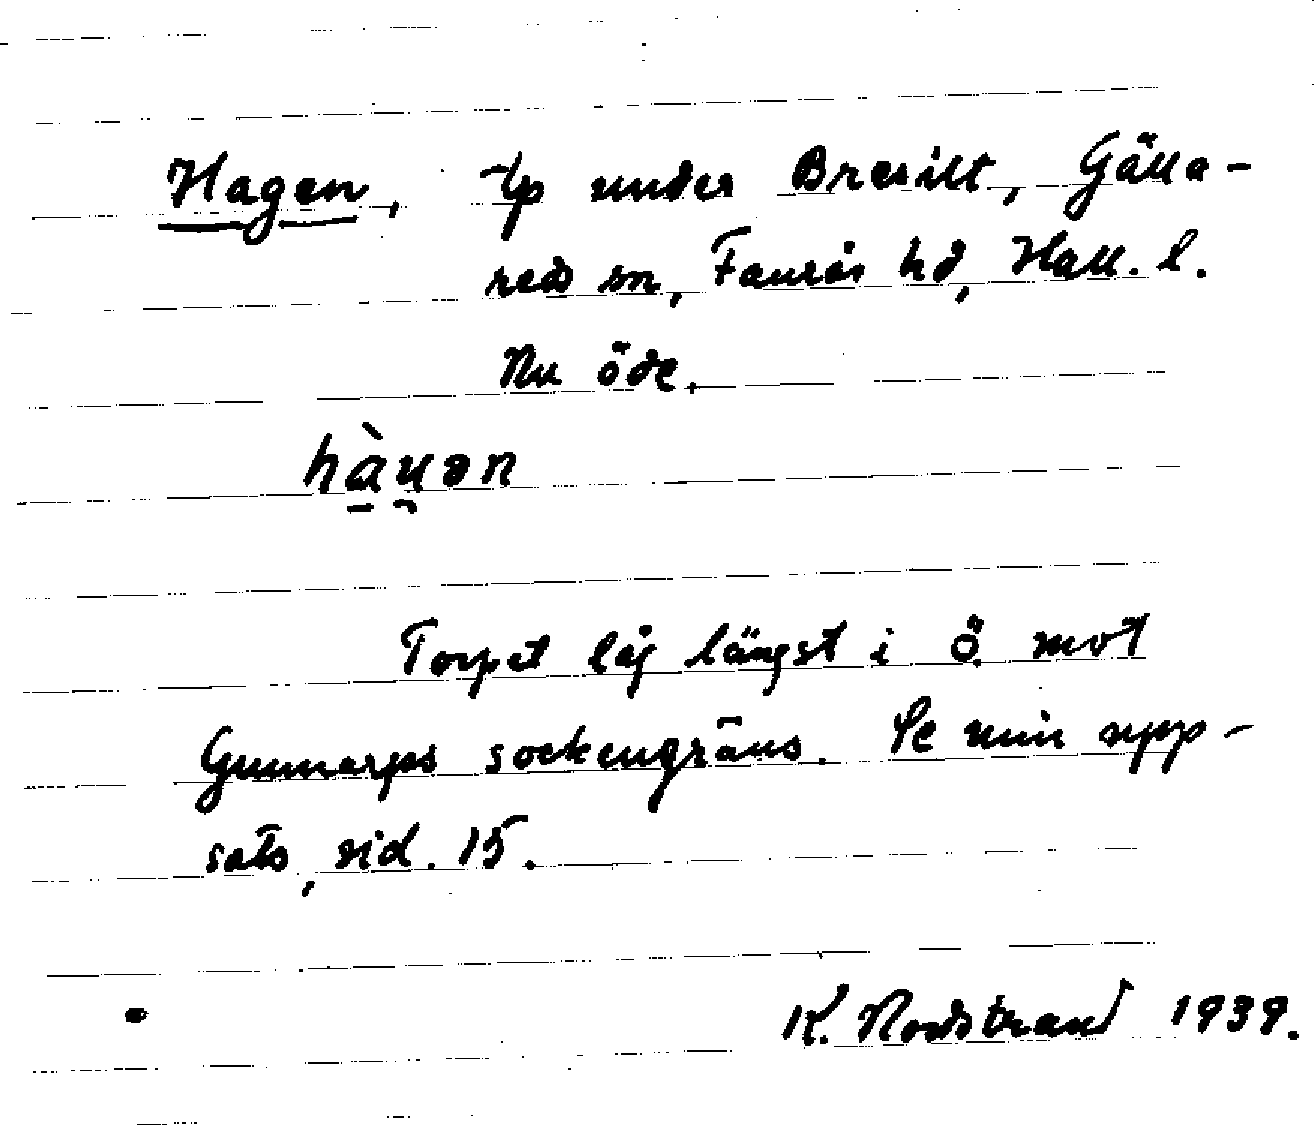 Hagen, tp under Bresilt, Gälla-
reds sn, Faurås hd, Hall. l.
Nu öde.
hà̱u̯ən
Torpet låg längst i Ö. mot
Gunnarps sockengräns. Se min upp-
sats, sid. 15.
K. Nordstrand 1939.